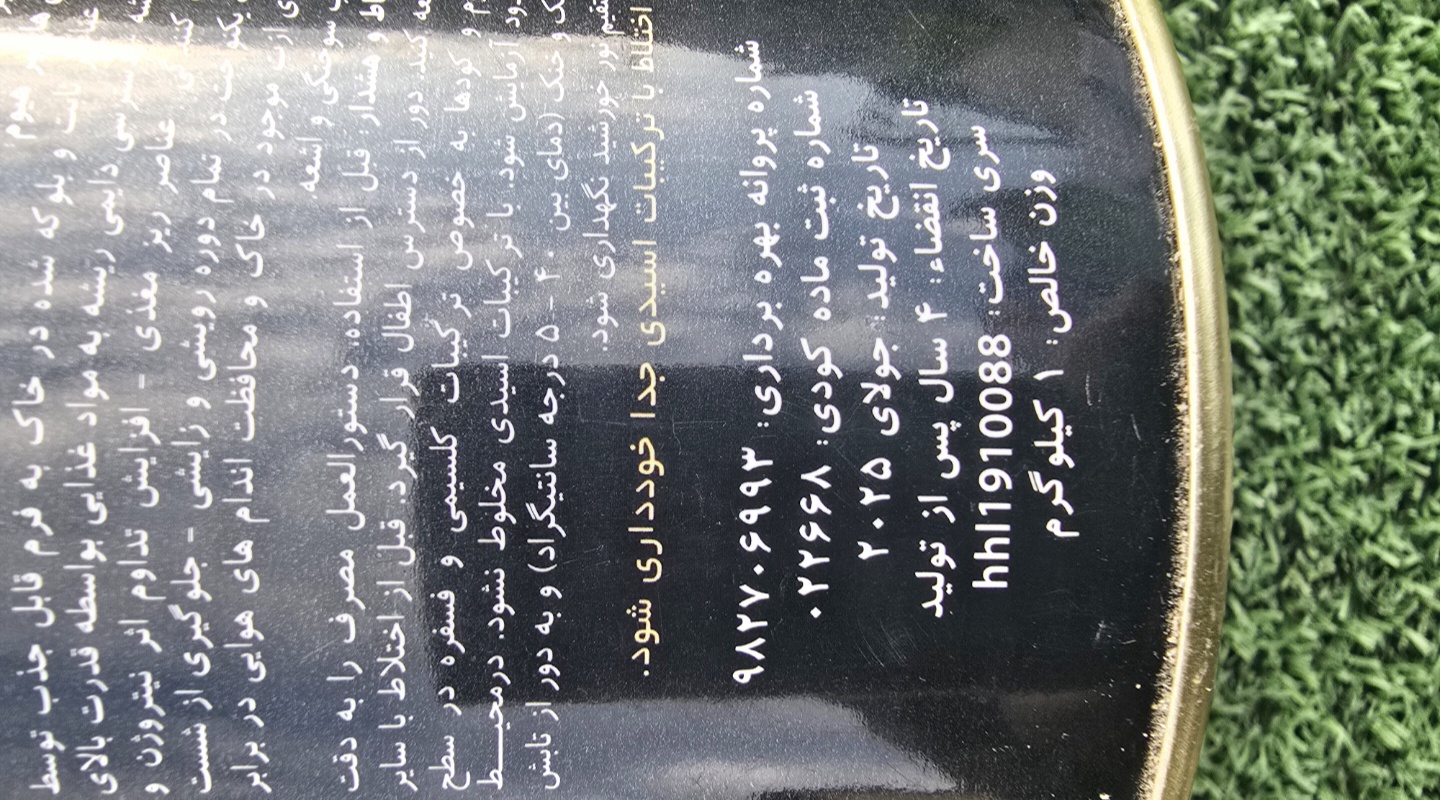 و بلوکه شده در خاک به فرم قابل جذب توسط
ریشه به مواد غذایی بواسطه قدرت بالای
عناصر ریز مغذی - افزایش تداوم اثر نیتروژن و
در تمام دوره رویشی و زایشی - جلوگیری از شست
ازت موجود در خاک و محافظت اندام های هوایی در برابر
سوختگی و اشعه.
و هشدار: قبل از استفاده، دستورالعمل مصرف را به دقت
کنید. دور از دسترس اطفال قرار گیرد. قبل از اختلاط با سایر
و کودها به خصوص ترکیبات کلسیمی و فسفره در سطح
آزمایش شود. با ترکیبات اسیدی مخلوط نشود. درمحیــط
و خنک (دمای بین ۴۰ - ۵ درجه سانتیگراد) و به دور از تابش
نور خورشید نگهداری شود.
اختلاط با ترکیبات اسیدی جدا خودداری شود.
شماره پروانه بهره برداری: ۹۸۲۷۰۶۹۹۳
شماره ثبت ماده کودی: ۰۲۲۶۶۸
تاریخ تولید: جولای ۲۰۲۵
تاریخ انقضاء: ۴ سال پس از تولید
سری ساخت: hhl1910088
وزن خالص: ۱ کیلوگرم